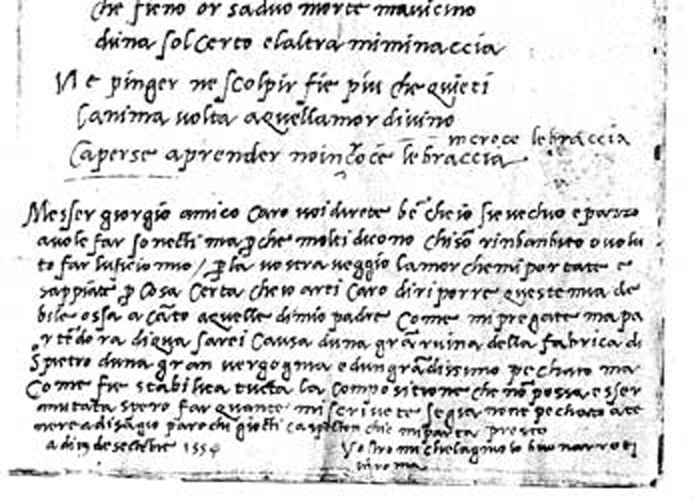 che fieno or sa duo morte mavicino
duna sol certo elaltra miminaccia
Ne pinger ne scolpir fie piu che quieti
lanima volta aquellamor divino
in croce le braccia
caperse aprender noi in croce le braccia
Messer giorgio amico caro voi direte be che io sie vechio e pazzo
a voler far sonecti ma p che molti dicono chi so rinbanbito o volu
to far luficio mio / p la vostra veggio lamor che mi portate e
sappiate p cosa certa che io arei caro di riporre queste mia de
bile ossa a cato a quelle di mio padre come mi pregate ma pa
rtedo ra di qua sarei causa duna gra ruina della fabrica di
s pietro duna gran vergognia e dun gradissimo pechato ma
come fie stabilita tucta la compositione che no possa esser
mutata spero far quante mi scrivete se gia none pechato a te
nere a disagio parechi giocti caspecton che mi parta presto
a di 19 de sectebre 1554
Vostro michelagniolo buonarroti
in roma